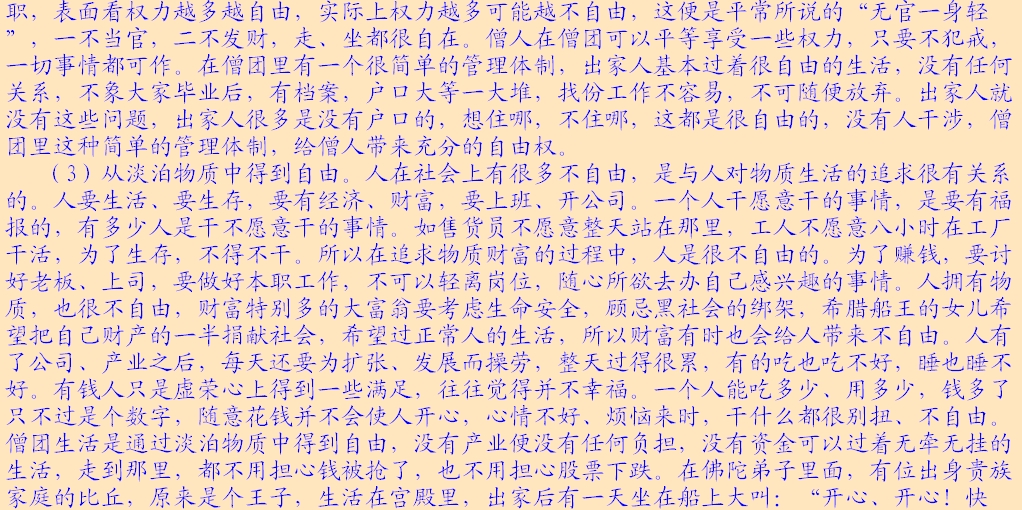 职，表面看权力越多越自由，实际上权力越多可能越不自由，这便是平常所说的“无官一身轻
”，一不当官，二不发财，走、坐都很自在。僧人在僧团可以平等享受一些权力，只要不犯戒，
一切事情都可作。在僧团里有一个很简单的管理体制，出家人基本过着很自由的生活，没有任何
关系，不象大家毕业后，有档案，户口大等一大堆，找份工作不容易，不可随便放弃。出家人就
没有这些问题，出家人很多是没有户口的，想住哪，不住哪，这都是很自由的，没有人干涉，僧
团里这种简单的管理体制，给僧人带来充分的自由权。
（3）从淡泊物质中得到自由。人在社会上有很多不自由，是与人对物质生活的追求很有关系
的。人要生活、要生存，要有经济、财富，要上班、开公司。一个人干愿意干的事情，是要有福
报的，有多少人是干不愿意干的事情。如售货员不愿意整天站在那里，工人不愿意八小时在工厂
干活，为了生存，不得不干。所以在追求物质财富的过程中，人是很不自由的。为了赚钱，要讨
好老板、上司，要做好本职工作，不可以轻离岗位，随心所欲去办自己感兴趣的事情。人拥有物
质，也很不自由，财富特别多的大富翁要考虑生命安全，顾忌黑社会的绑架，希腊船王的女儿希
望把自己财产的一半捐献社会，希望过正常人的生活，所以财富有时也会给人带来不自由。人有
了公司、产业之后，每天还要为扩张、发展而操劳，整天过得很累，有的吃也吃不好，睡也睡不
好。有钱人只是虚荣心上得到一些满足，往往觉得并不幸福。一个人能吃多少、用多少，钱多了
只不过是个数字，随意花钱并不会使人开心，心情不好、烦恼来时，干什么都很别扭、不自由。
僧团生活是通过淡泊物质中得到自由，没有产业便没有任何负担，没有资金可以过着无牵无挂的
生活，走到那里，都不用担心钱被抢了，也不用担心股票下跌。在佛陀弟子里面，有位出身贵族
家庭的比丘，原来是个王子，生活在宫殿里，出家后有一天坐在船上大叫：“开心、开心！快